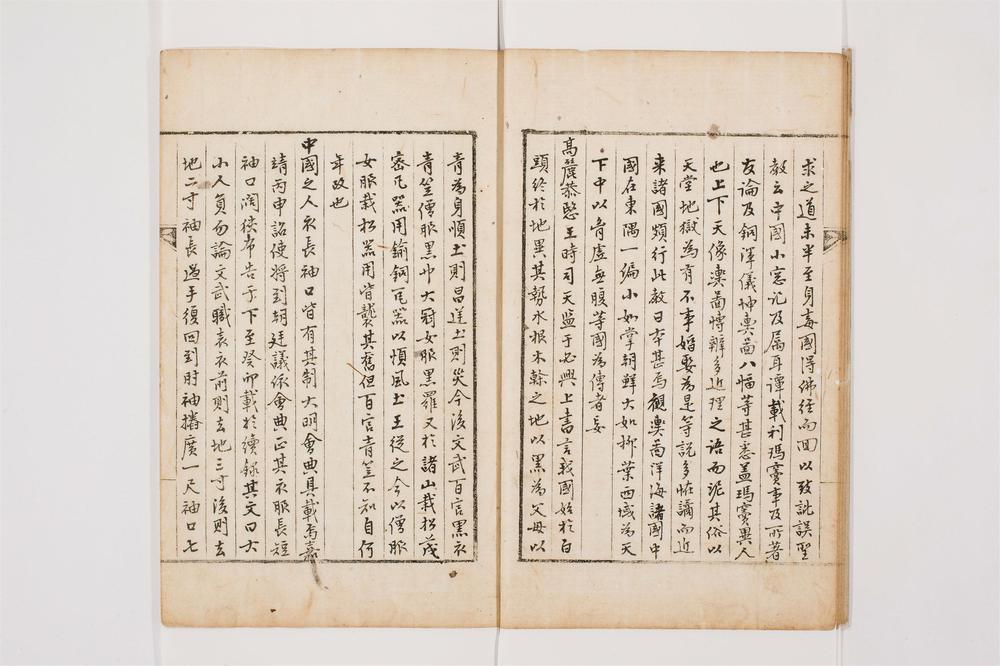 求之道未半至身毒國得佛經而回以致訛誤聖
教云中國小窓記及屬耳譚載利瑪竇事及所著
友論及銅渾儀坤輿圖八幅等甚悉盖瑪竇異人
也上下天像輿啚愽辨多近理之語而泥其俗以
天堂地獄為有不事婚娶為是等說多恠譎而近
来諸國頗行此教日本甚焉觀輿啚洋海諸國中
國在東隅一編小如掌朝鮮大如柳葉西域為天
下中以有虛無腹等國為傳者妄
高麗恭愍王時司天監于必興上書言我國始於白
頭終於地異其勢水根木幹之地以黑為父母以
青為身順土則昌逆土則災今後文武百官黑衣
青笠僧服黑巾大冠女服黑羅又於諸山栽松茂
密凡器用鍮銅瓦器以順風土王從之今以僧服
女服栽松器用皆襲其舊但百官青笠不知自何
年故也
中國之人衣長袖口皆有其制大明會典具載焉嘉
靖丙申詔使將到朝廷議依會典正其衣服長短
袖口闊狹布告于下至癸卯載於續録其文曰大
小人員勿論文武職表衣前則去地三寸後則去
地二寸袖長過手復回到肘袖樁廣一尺袖口七